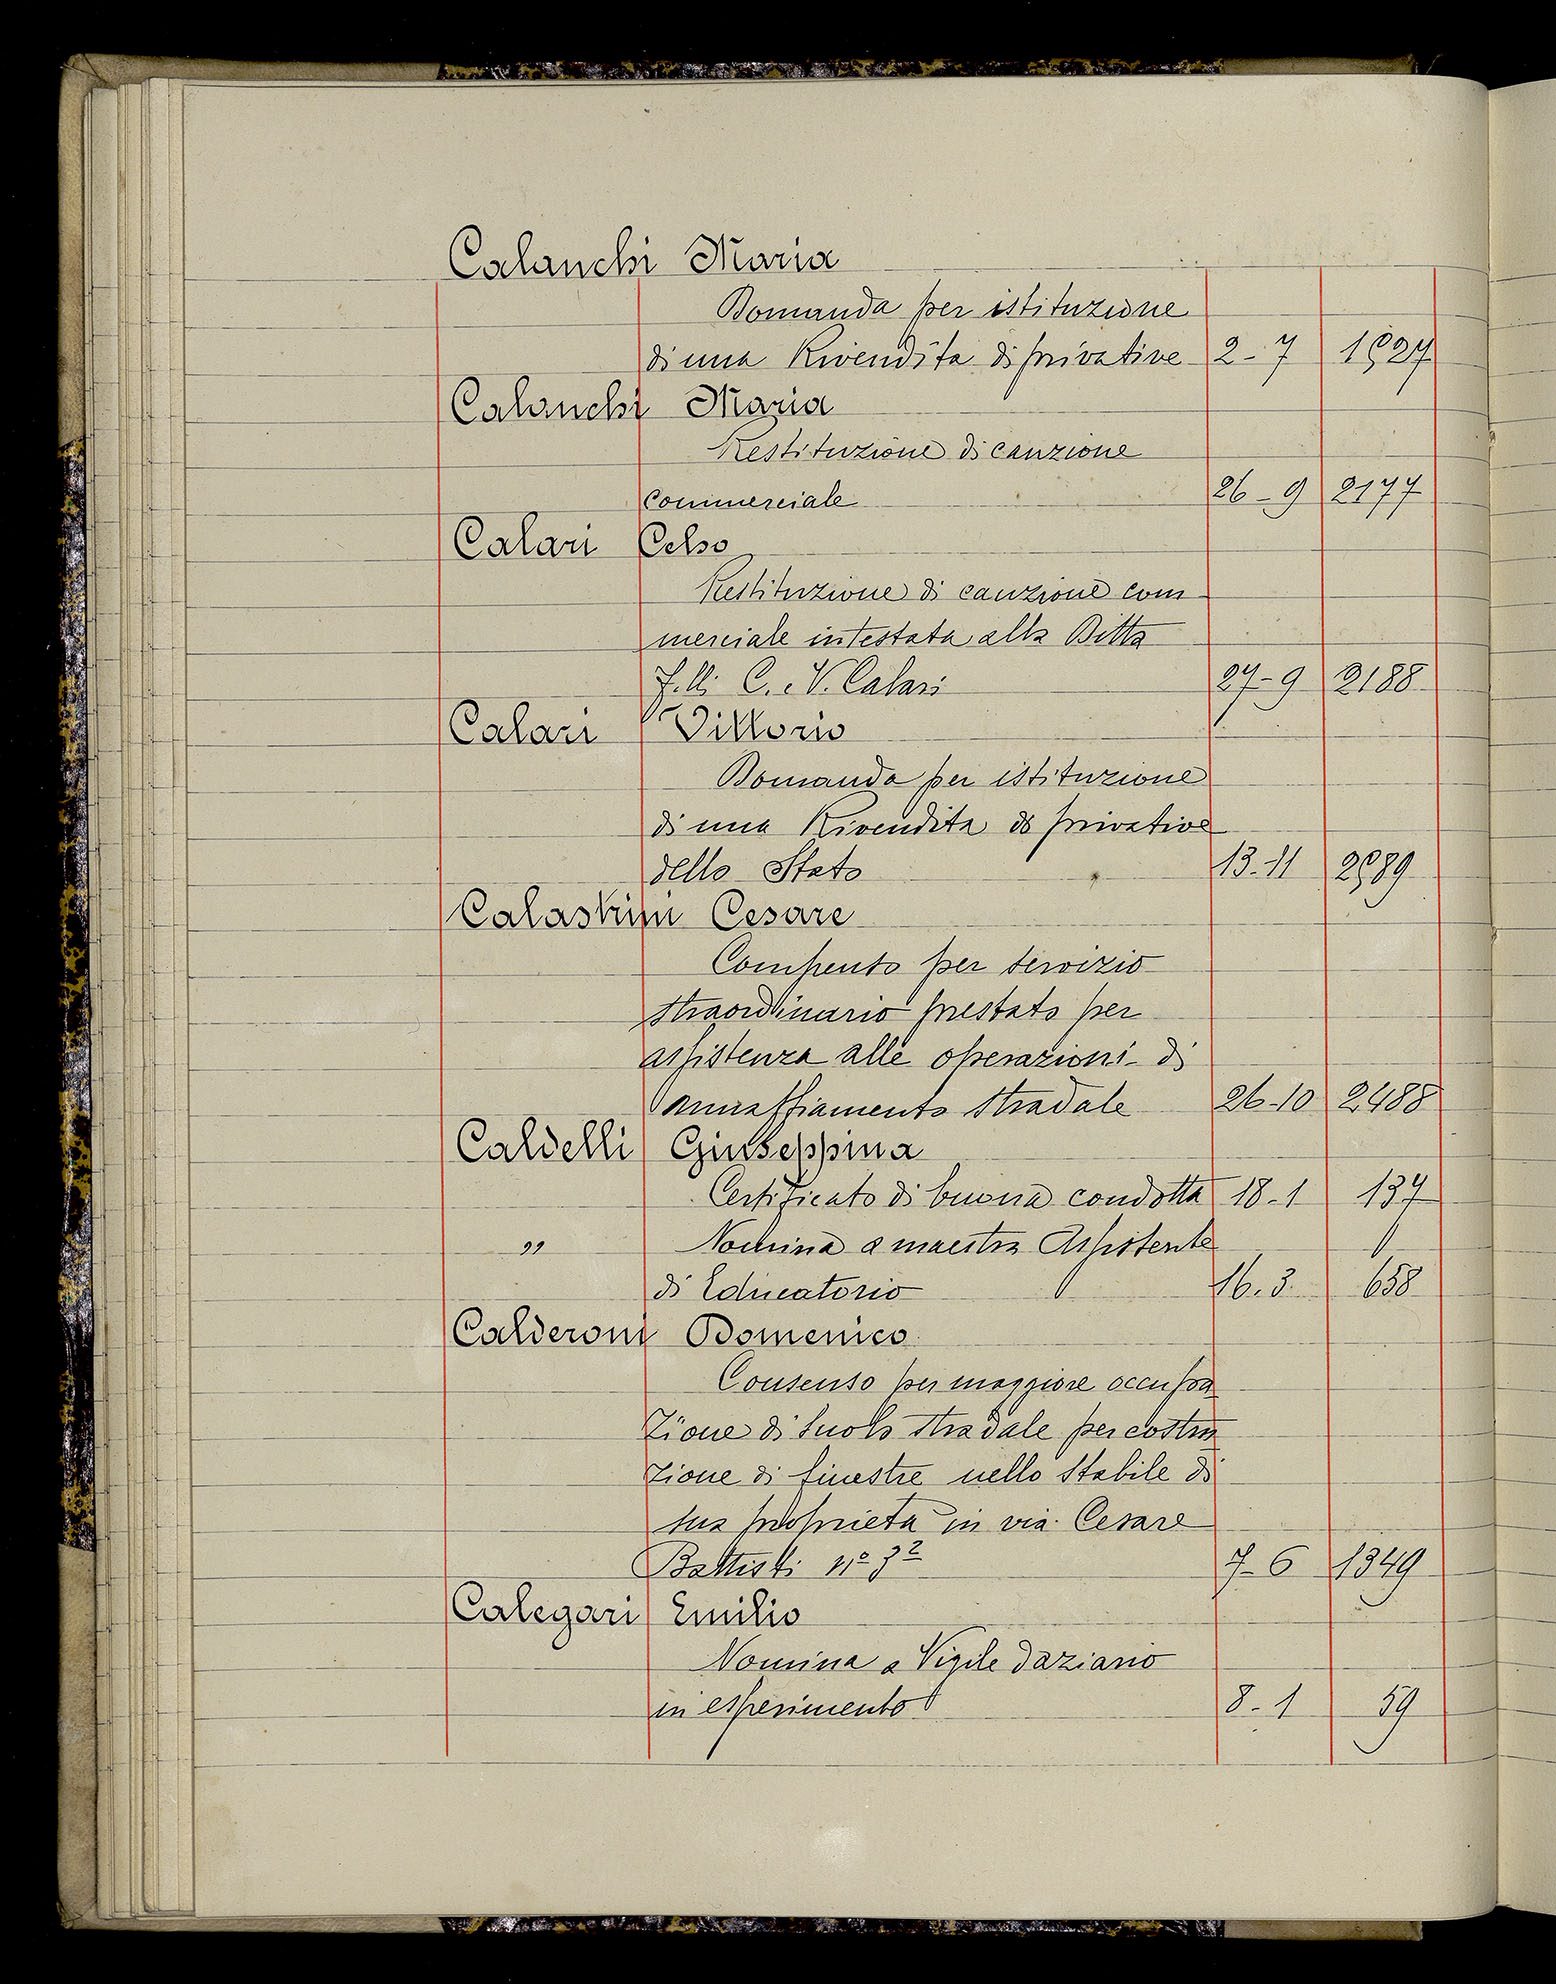 Calanchi Maria
Domanda per istituzione
di una Rivendita di privative 2-7 1527
Calanchi Maria
Restituzione di cauzione
commerciale 26-9 2177
Calari Celso
Restituzione di cauzione com
merciale intestata alla Ditta
F.lli C. e V. Calari 27-9 2188
Calari Vittorio
Domanda per istituzione
di una Rivendita di privative
dello Stato 13-11 2589
Calastrini Cesare
Compento per servizio
straordinario prestato per
assistenza alle operazioni di
annaffiamento stradale 26-10 2488
Caldelli Giuseppina
Certificato di buona condotta 18-1 137
" Nomina a maestra Assistente
di Educatorio 16.3. 658
Calderoni Domenico
Consenso per maggiore occupa
zione di suolo stradale per costru
zione di finestre nello stabile di
sua proprietà in via Cesare
Battisti nº 32 7-6 1349
Calegari Emilio
Nomina a Vigile daziario
in esperimento 8-1 59